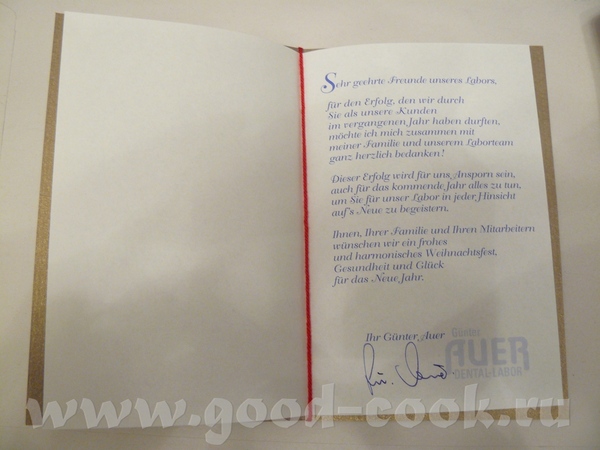 Sehr geehrte Freunde unseres Labors,
für den Erfolg, den wir durch
Sie als unsere Kunden
im vergangenen Jahr haben durften,
möchte ich mich zusammen mit
meiner Familie und unserem Laborteam
ganz herzlich bedanken!
Dieser Erfolg wird für uns Ansporn sein,
auch für das kommende Jahr alles zu tun,
um Sie für unser Labor in jeder Hinsicht
auf's Neue zu begeistern.
Ihnen, Ihrer Familie und Ihren Mitarbeitern
wünschen wir ein frohes
und harmonisches Weihnachtsfest,
Gesundheit und Glück
für das Neue Jahr.
Ihr Günter Auer
Günter
AUER
DENTAL-LABOR
www.good-cook.ru